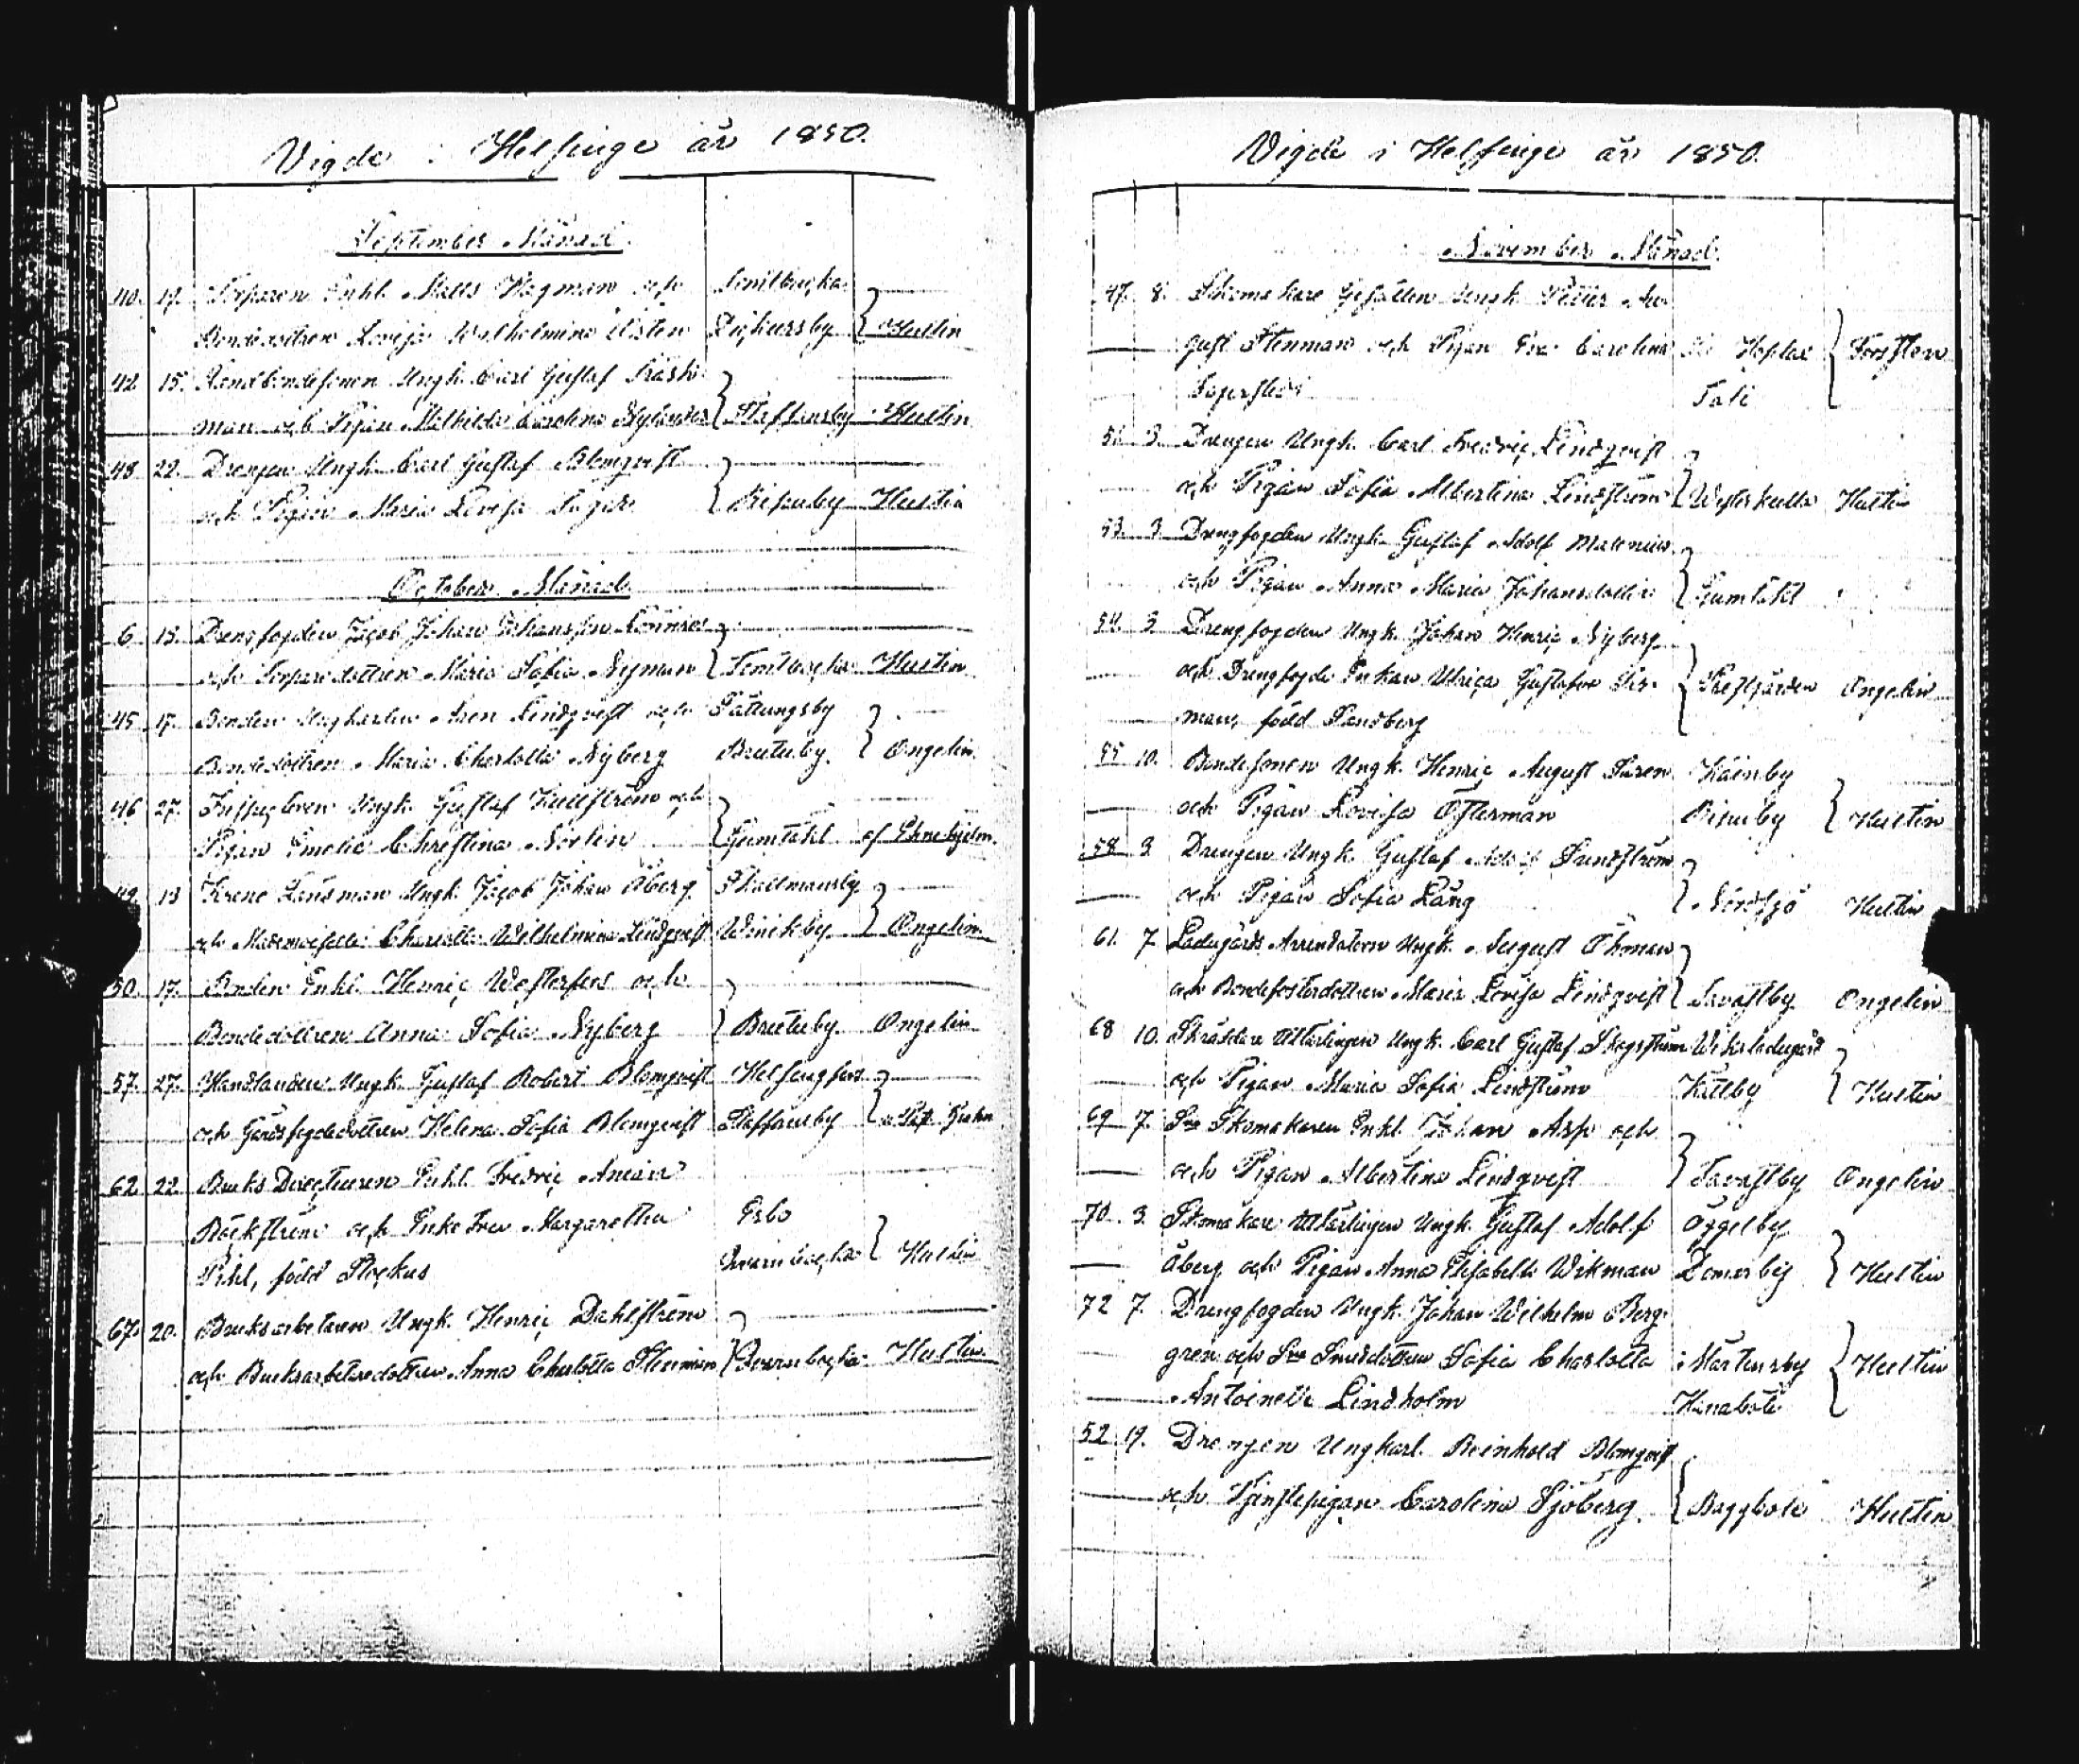 Vigde i Helsinge år 1850.
September Månad.
40. 17. Torparen Enkl. Matts Hagman och Tomtbacka
Bondedottren Lovisa Wilhelmina Dickursby Hultin
42 15. Landbondesonen Ungk. Carl Gustaf
man och Pigan Mathilda Carolina Nylander Staffansby Hultin
48 22. Drengen Ungk. Carl Gustaf Blomqvist
och Pigan Maria Lovisa Biskuby Hultin
October Månad
6. 13. Drengfogden Jacob Johan Johansson
och Torparedottren Maria Sofia Nyman Tomtbacka Hultin
45 17. Bonden Ungkarlen Lindqvist och Fastungsby
Bondedottren Maria Charlotta Nyberg Brutuby Ongelin
46 27. Inspectoren Ungk. Gustaf Kullström och
Pigan Emelie Christina Norlin Gumtäkt af Ehnebjelm.
49 13 Krono Länsman Ungk. Jacob Johan Åberg Skattmansby
och Mademoiselle Charlotta Wilhelmina Lindqvist Winikby Ongelin
50. 17. Bonden Enkl. Henric Westerfors och
Bondedottren Anna Sofia Nyberg Brutuby Ongelin
57. 27. Handlanden Ungk. Gustaf Robert Blomqvist Helsingfors
och Gårdsfogdedottren Helena Sofia Blomqvist Staffansby
62 22 Bruks Directeuren Enkl. Fredric Anian
Bäckström och Enke Fru Margaretha Esbo
Pihl, född Stockus Qvarnbacka Hultin
67. 20. Bruksarbetaren Ungk. Henric Dahlström
och Bruksarbetaredottren Anna Charlotta Stenman Qvarnbacka Hultin
Vigde i Helsinge år 1850.
November Månad.
47. 8. Skomakare Gesällen Ungk. Petter Au-
gust Stenman och Pigan Eva Carolina Hoplax Forssten
Fagerstedt Tali
51. 3. Drengen Ungk. Carl Fredric Lindqvist
och Pigan Sofia Albertina Lindström Westerkulla Hultin
53. 3. Drengfogden Ungk. Gustaf Adolf Malenius
och Pigan Anna Maria Johansdotter Gumtäkt
54. 3. Drengfogden Ungk. Johan Henric Nyberg
och Drengfogde Enkan Ulrica Gustafva Prestgården Ongelin
man, född Sandberg
55 10. Bondesonen Ungk. Henric August Käinby
och Pigan Lovisa Österman Biskuby Hultin
58 3 Drengen Ungk. Gustaf Adolf Sundström
och Pigan Sofia Lång Nordsjö Hultin
61. 7 Ladugårds Arrendatorn Ungk. August Öhman
och Bondefosterdottren Maria Lovisa Lindqvist Savastby Ongelin
68 10. Skräddare Mästaren Ungk. Carl Gustaf Skogström Wiksladugård
och Pigan Maria Sofia Lindström Kallby Hultin
69 7. Sne Skomakaren Enkl. Johan Asp och
och Pigan Albertina Lindqvist Savastby Ongelin
70. 3. Skomakare Ungk. Gustaf Adolf Åggelby
Åberg och Pigan Anna Elisabeth Wikman Domarby Hultin
72 7. Drengfogden Ungk. Johan Wilhelm Berg-
gren och Sne Smedsdottren Sofia Charlotta i Mårtensby Hultin
Antoinette Lindholm Hanaböle
52 19. Drengen Ungkarl. Reinhold Blomqvist
och Tjenstepigan Carolina Sjöberg. Baggböle Hultin